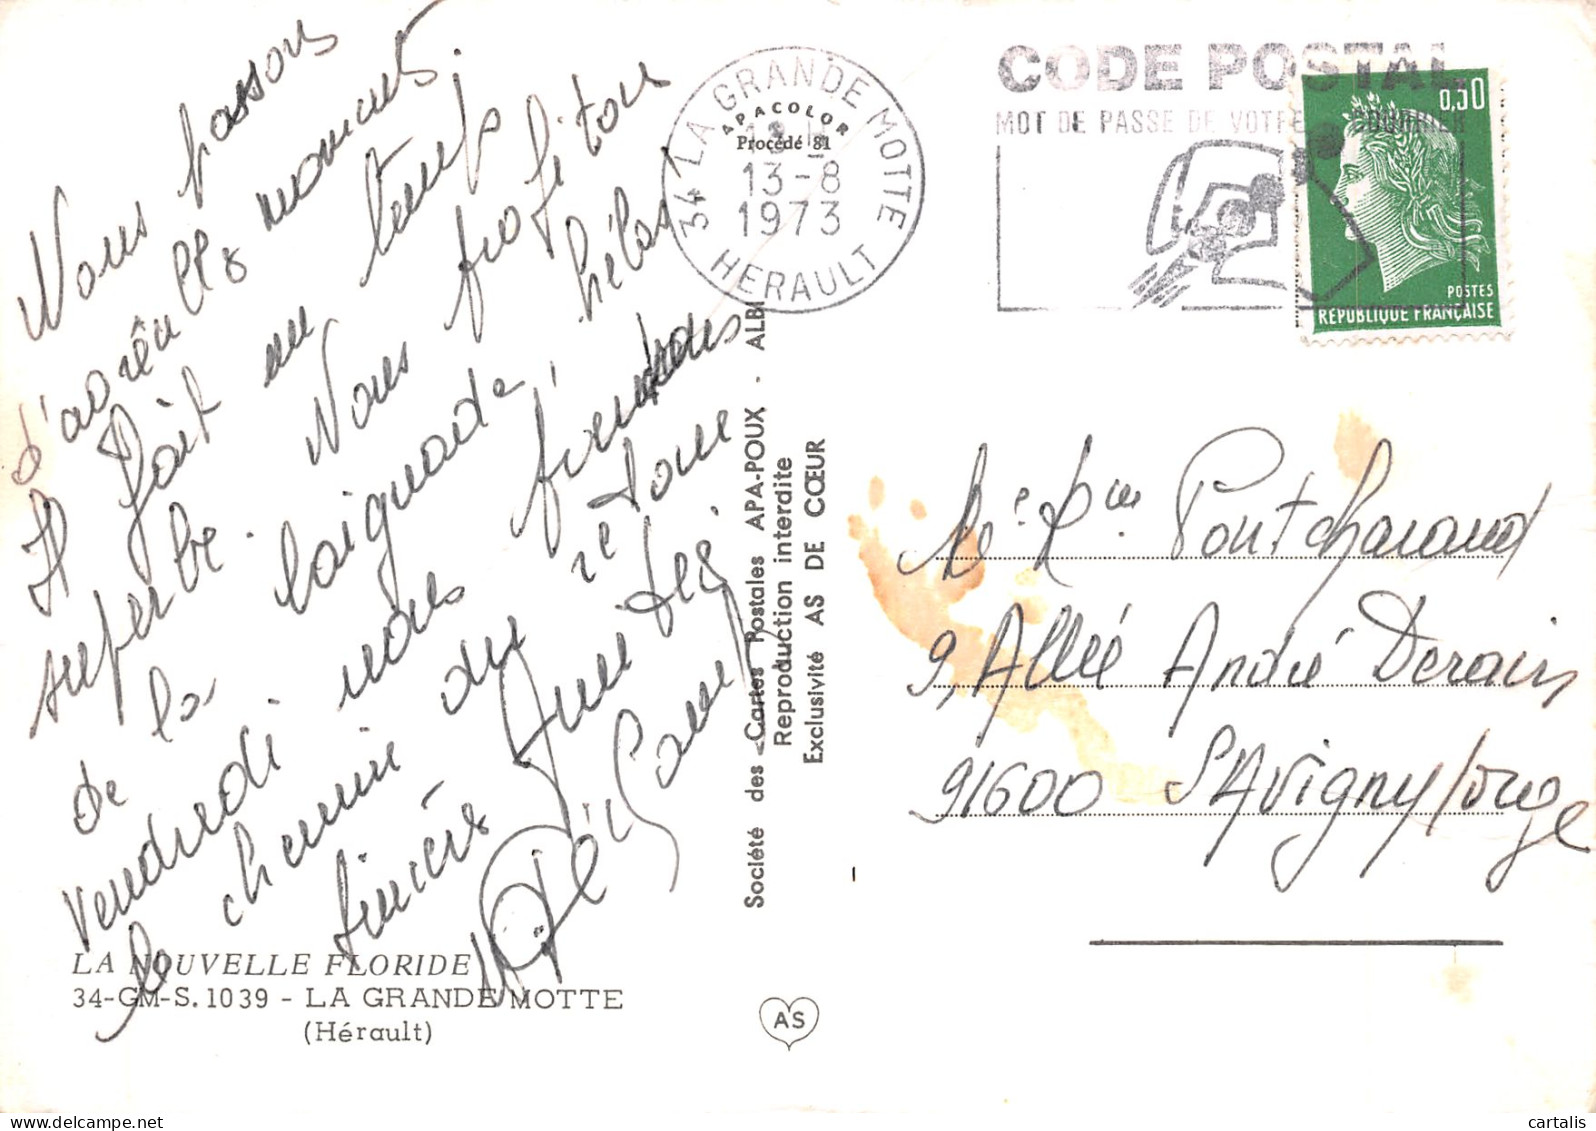 Nous passons
d'agréables moments
Il fait un temps
superbe. Nous profitons
de la baignade hélas
vendredi nous prendrons
le chemin du retour
Sincères Amitiés
LA NOUVELLE FLORIDE
34-GM-S. 1039 - LA GRANDE MOTTE
(Hérault)
Société des Cartes Postales APA-POUX - ALBI
Reproduction interdite
Exclusivité AS DE CŒUR
AS
APACOLOR
Procédé 81
34 LA GRANDE MOTTE
13-8
1973
HERAULT
CODE POSTAL
MOT DE PASSE DE VOTRE COURRIER
0,30
POSTES
RÉPUBLIQUE FRANÇAISE
Pontcharaud
9, Allée André Derain
91600 SAvigny/orge
cartalis